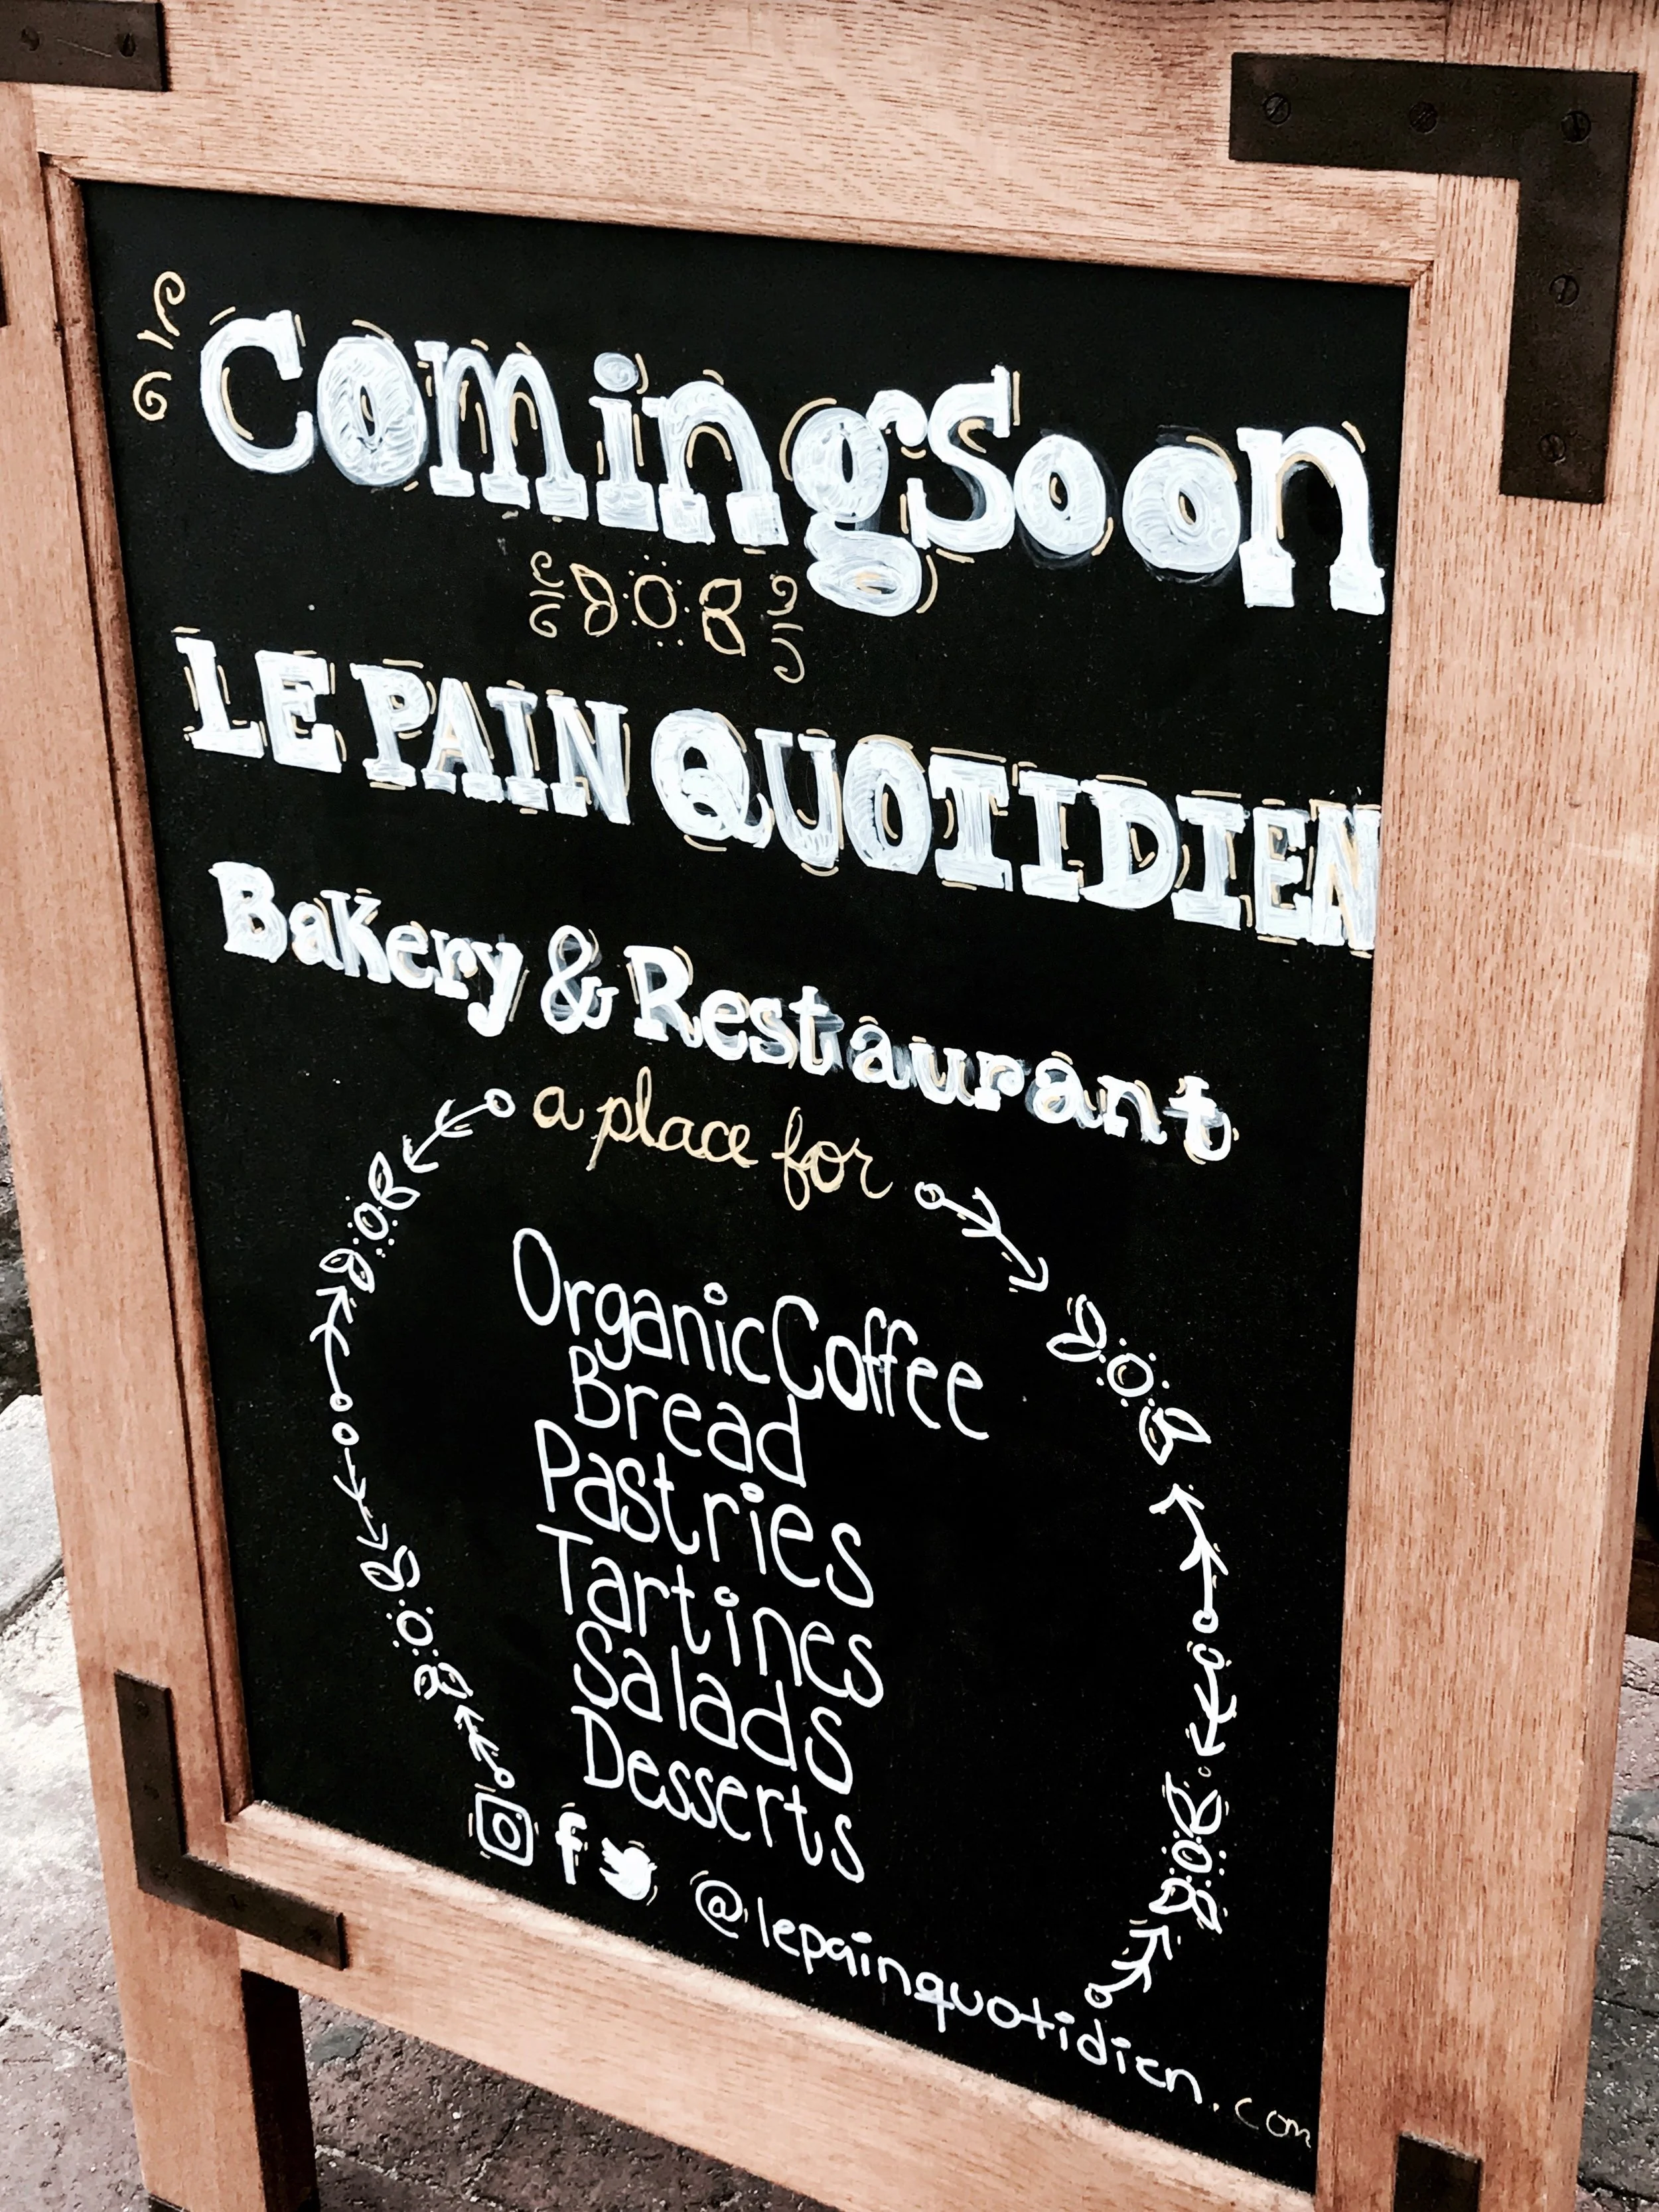 Coming Soon
LE PAIN QUOTIDIEN
Bakery & Restaurant
a place for
Organic Coffee
Bread
Pastries
Tartines
Salads
Desserts
@lepainquotidien.com